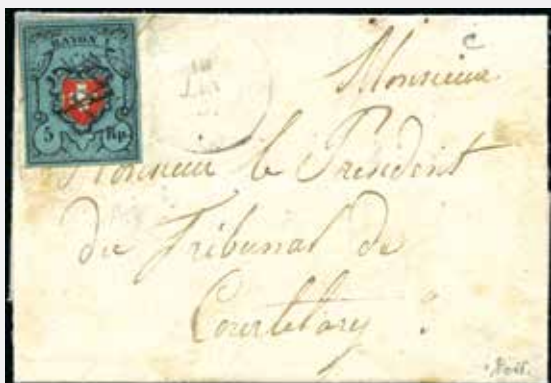 RAYON
5 Rp.
Monsieur
Monsieur le President
du Tribunal de
Courtelary